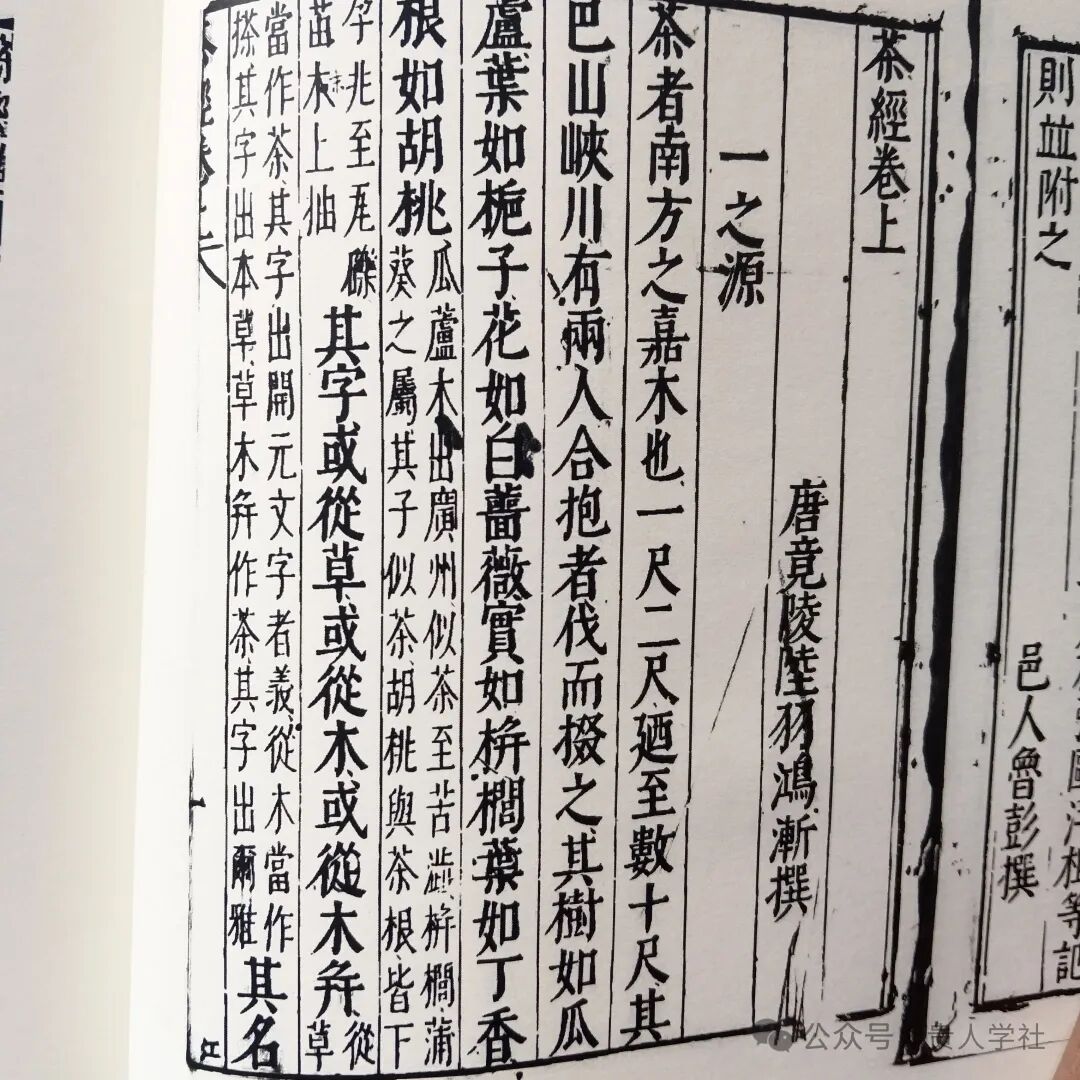 則並附之
邑人魯彭撰
茶經卷上
唐竟陵陸羽鴻漸撰
一之源
茶者南方之嘉木也一尺二尺廼至數十尺其
巴山峽川有兩人合抱者伐而掇之其樹如瓜
蘆葉如梔子花如白薔薇實如栟櫚葉如丁香
根如胡桃瓜蘆木出廣州似茶至苦澁栟櫚蒲葵之屬其子似茶胡桃與茶根皆下
孕兆至瓦礫苗木上抽其字或從草或從木或從木并從草
當作茶其字出開元文字者義從木當作搽其字出本草草木并作茶其字出爾雅其名
公众号 贵人学社